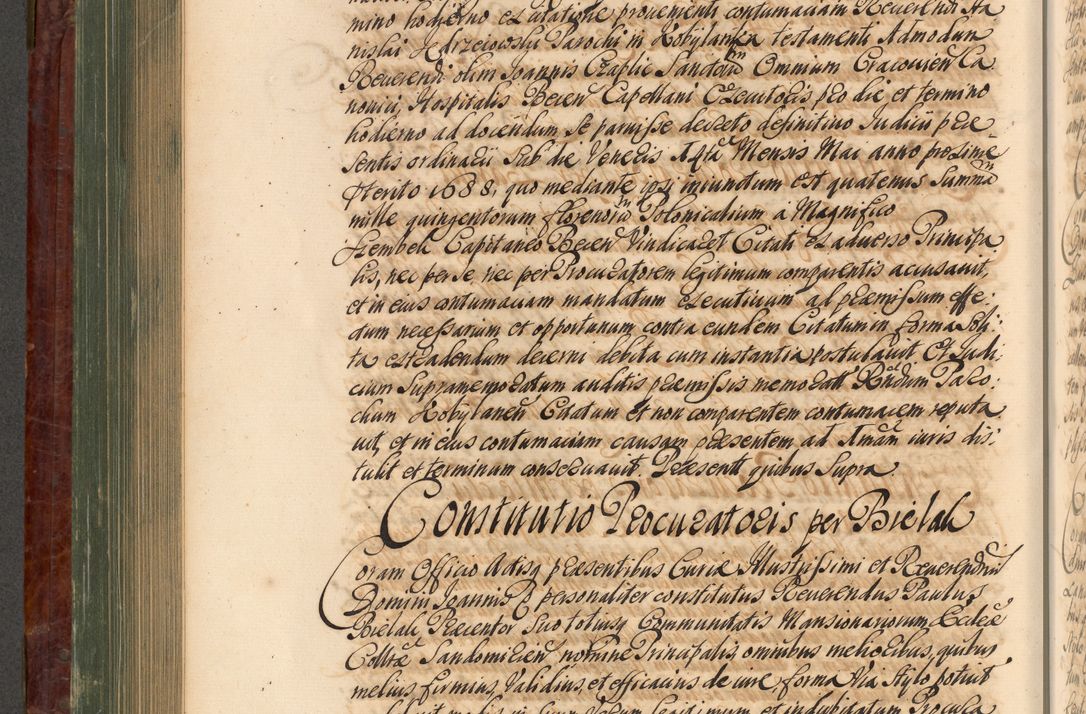 mino hodierno ex citatione provenienti contumaciam Reverendi Sta
nislai Jedrzeiowski Parochi in Kobylanka testamenti Admodum
Reverendi olim Joannis Czaplic Sanctorū Omnium Cracovien Ca
nonici, Hospitalis Becen Capellani Executoris pro die et termino
hodierno ad docendum se paruisse decreto definitivo Iudicii prae
sentis ordinarii sub die Veneris 14ta Mensis Mai anno proxime
sterito 1688, quo mediante ipsi iniunctum est quatenus Summā
mille quingentorum florenorū Polonicalium a Magnifico
Szembek Capitaneo Becen Vindicaret Citati ex adverso Principa
lis, nec per se, nec per Procuratorem legitimum comparentis accusavit,
et in eius contumaciam mandatum executivum ad praemissum effe:
ctum necessarium et opportunum contra eundem Citatum in forma Soli:
ta extradendum decerni debita cum instantia postulavit. Et Iudi:
cium Supramemoratum auditis praemissis memorat Rndum Paro:
chum Kobylanen Citatum et non comparentem contumacem reputa
vit, et in eius contumaciam causam praesentem ad Amām iuris dis:
tulit et terminum conservavit. Praesent quibus Supra
Constitutio Procuratoris per Bielak
Coram Officio Actisq praesentibus Curiae Illustrissimi et Reverendmi
Domini Joannis &c personaliter constitutus Reverendus Paulus
Bielak Praecentor Suo totiusq Communitatis Mansionariorum Ecclae
Colltae Sandomirien nomine Principalis, omnibus melioribus, quibus
melius, firmius, Validius, et efficacius de iure, forma Via Stylo potuit